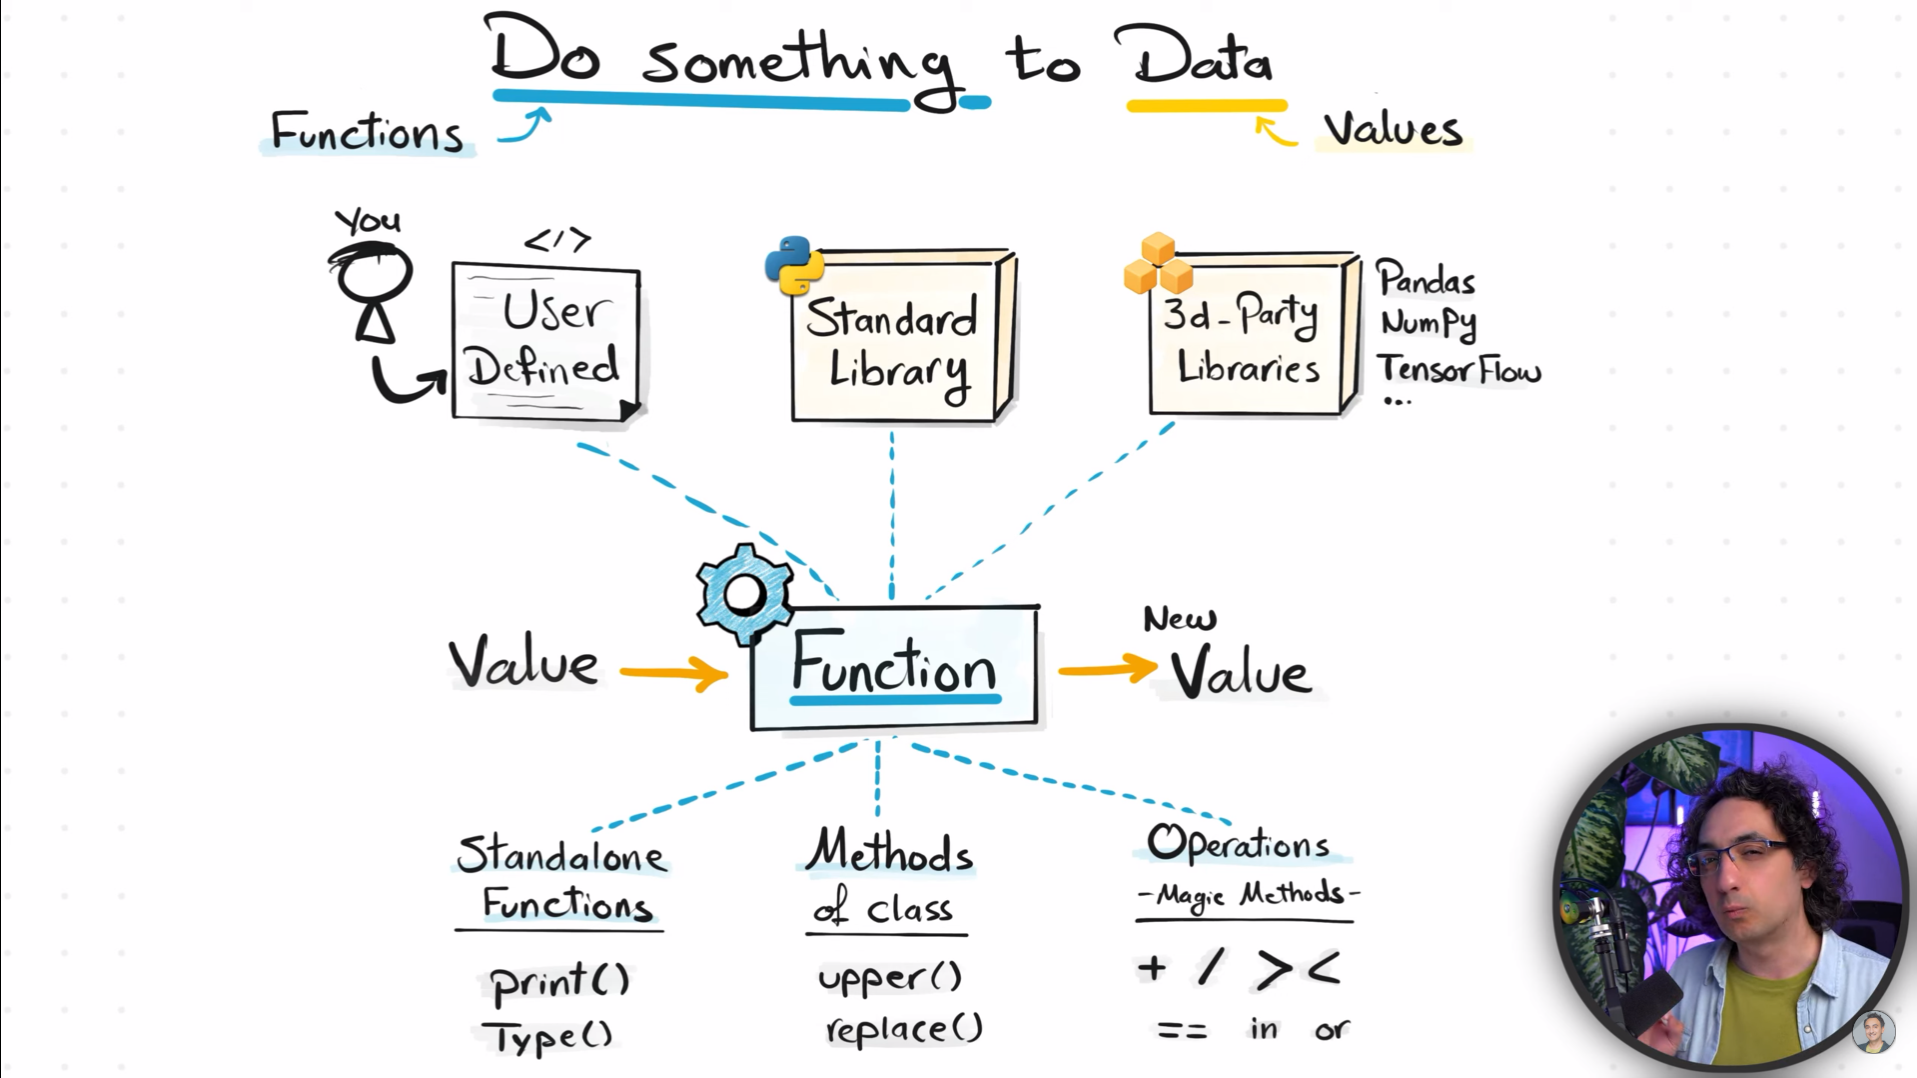 Do something to Data
Functions
Values
You
</>
User
Defined
Standard
Library
3d-Party
Libraries
Pandas
NumPy
TensorFlow
...
Value
Function
New
Value
Standalone
Functions
print()
Type()
Methods
of class
upper()
replace()
Operations
-Magic Methods-
+ / > <
== in or